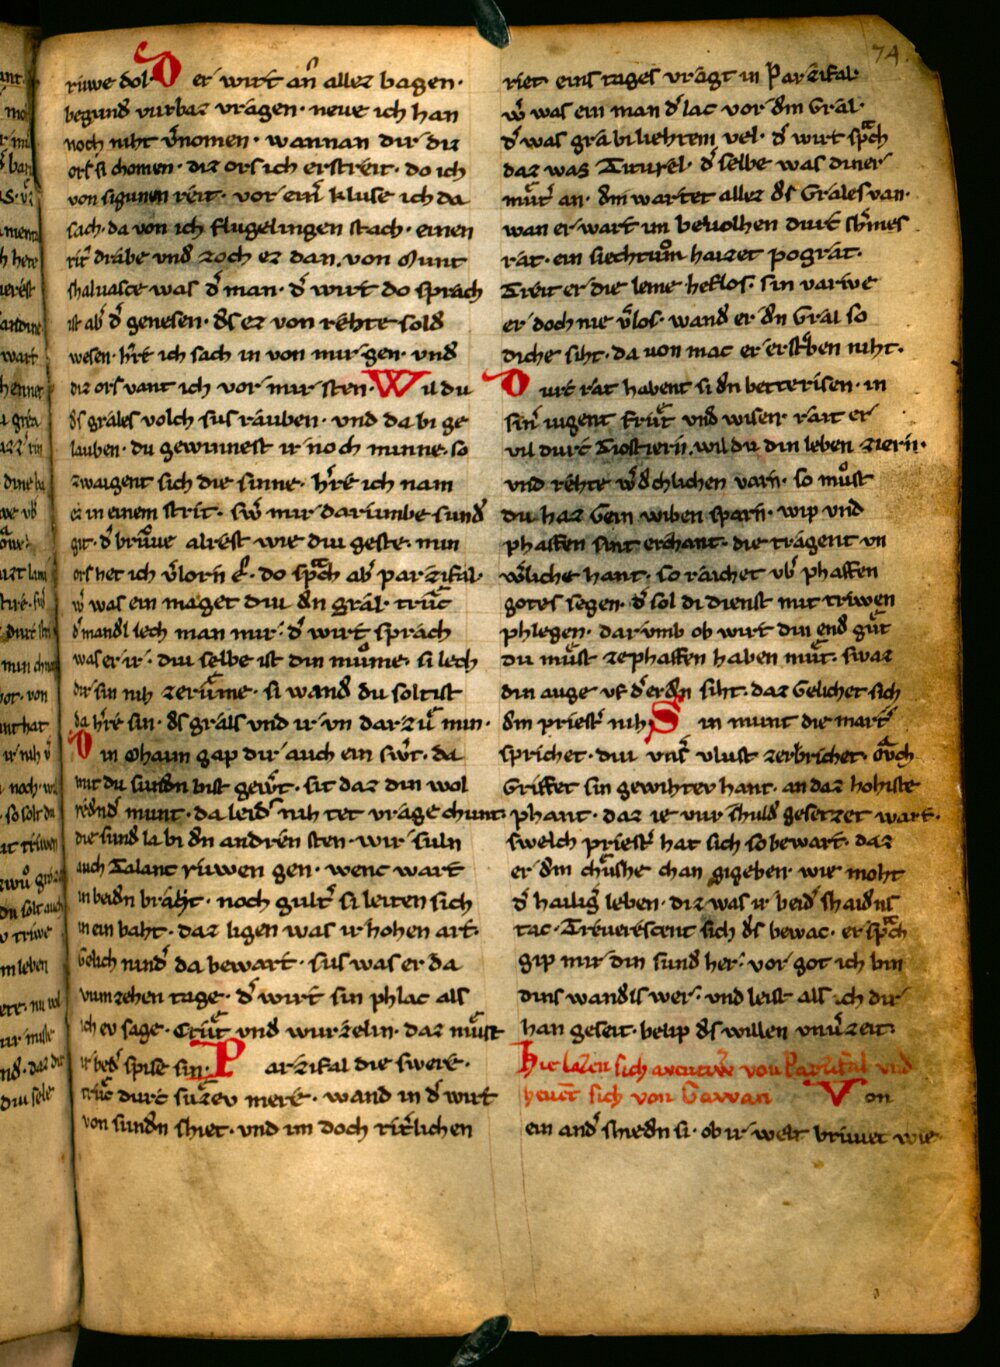 74.
riuwe dol· D er wirt an̄ allez bagen·
begund vurbaz vragen· neve ich han
noch niht v̄nomen· wannan dir diz
ors si chomen· diz ors ich erstreit· do ich
von sigunen reit· vor ein̄ kluse ich da
sach· da von ich flugelingen stach· einen
rit͛ drabe und zoch ez dan. von Munt
shalvasce was d͛ man· d͛ wirt do sprach
ist ab͛ d͛ genesen· des ez von rehte sold
wesen· h͛re ich sach in von mir gen· und
diz ors vant ich vor mir sten· Wil du
ds grales volch sus rauben· und da bi ge
lauben· du gewinnest ir noch minne· so
zwaigent sich die sinne· h͛re ich nam
ez in einem strit· sw͛ mir darumbe sund
git· d͛ bruͦve alrest wie diu geste· min
ors het ich v͛lorn e͛· do spͣch ab͛ parzifal·
w͛ was ein maget diu dn gral truͦc
d͛ mandl lech man mir· d͛ wirt sprach
was er ir· diu selbe ist din muͦme· si lech
dir sin nih zeruͦme· si wand du soltist
da h͛re sin· ds grals und ir vn darzuͦ min·
D in Ohaim gap dir auch ein sw͛t· da
mit du sunden bist gew͛t· sit daz din wol
rednd͛ munt· da leid͛ nih tet vrage chunt·
die sund la bi dn andren sten· wir suln
auch Talanc ruwen gen· wenc wart
in beidn braht· noch gult͛ si leiten sich
in ein baht· daz ligen was ir hohen art·
Gelich nind͛ da bewart· sus was er da
vumzehen tage· d͛ wirt sin phlac als
ich ev sage· Cruͦt und wurzelin· daz muͦst
ir bed͛ spise sin· P arzifal die swere·
truͦc durc suͤzev mere· wand in d͛ wirt
von sundn shiet· und im doch rit͛lichen
riet· eins tages vragt in Parzifal·
w͛ was ein man d͛ lac vor dm Gral·
d͛ was gra bi liehtem vel· d͛ wirt spͣch
daz was Titurel· d͛ selbe was diner
muͦt͛ an· dm wartet allez ds Grales van·
wan er wart im bevolhen durt sh͛mes
rat· ein siechtuͦm haizet pograt·
Treit er die leme helflos· sin varwe
er doch nie v͛los· wand er dn Gral so
diche siht· da von mac er ersterben niht·
D urc rat habent si dn betterisen· in
sin͛ iugent fruͦt und wisen· rait er
vil durc Tiostiern. wil du din leben ziern·
und rehte w͛dchlichen varn· so muͦst
du haz Gein wiben sparn· wip und
phaffen sint erchant· die tragent vn
w͛liche hant· so raichet vb͛ phaffen
gotes segen· d͛ sol di dienst mit triwen
phlegen· darumb ob wirt din end guͦt
du muͦst ze phaffen haben muͦt· swaz
din auge uf d͛ erdn siht· daz Gelichet sich
dm priest͛ nih· S in munt die mart͛
sprichet· diu uns͛ vlust zerbrichet· ouch
Griffet sin gewihtev hant· an daz hohiste
phant· daz ie vur shuld gesetzet wart·
swelch priest͛ hat sich so bewart· daz
er dm chuͤshe chan gigeben· wie moht
d͛ hailig͛ leben· diz was ir beid͛ shaidns
tac· Trevrescent sich ds bewac· er spͣch
gip mir din sund her· vor got ich bin
dins wandls wer· und leist als ich dir
han geseit· belip ds willen unv͛zeit·
Hie lazen sich aventiv͛ von Parzifal und
hevet sich von Gawan V on
ein and͛ shiedn si· ob ir welt brivet wie